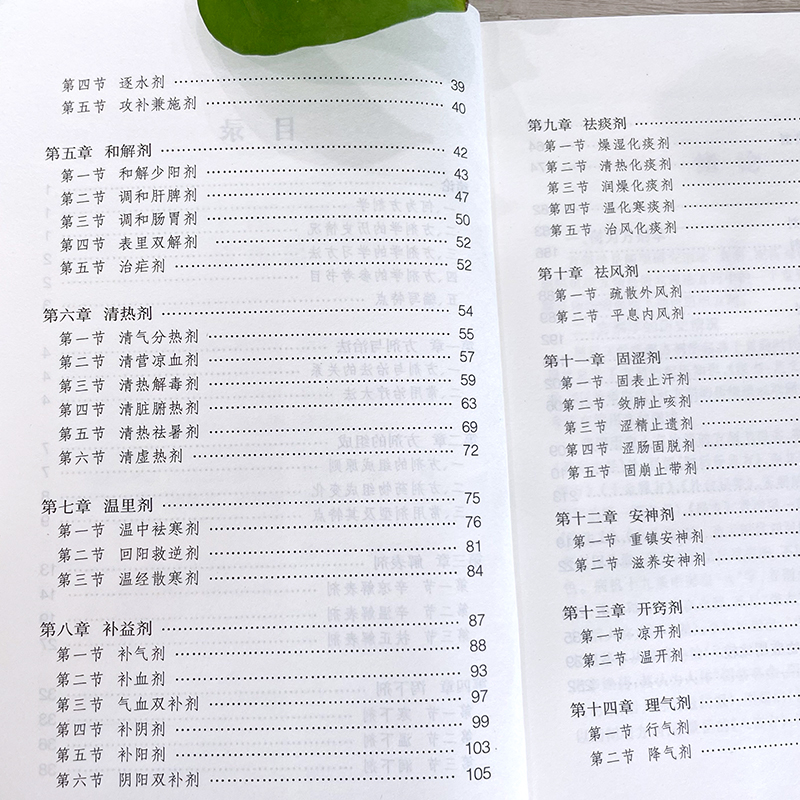 第四节 逐水剂 39
第五节 攻补兼施剂 40
第五章 和解剂 42
第一节 和解少阳剂 43
第二节 调和肝脾剂 47
第三节 调和肠胃剂 50
第四节 表里双解剂 52
第五节 治疟剂 52
第六章 清热剂 54
第一节 清气分热剂 55
第二节 清营凉血剂 57
第三节 清热解毒剂 59
第四节 清脏腑热剂 63
第五节 清热祛暑剂 69
第六节 清虚热剂 72
第七章 温里剂 75
第一节 温中祛寒剂 76
第二节 回阳救逆剂 81
第三节 温经散寒剂 84
第八章 补益剂 87
第一节 补气剂 88
第二节 补血剂 93
第三节 气血双补剂 97
第四节 补阴剂 99
第五节 补阳剂 103
第六节 阴阳双补剂 105
第九章 祛痰剂
第一节 燥湿化痰剂
第二节 清热化痰剂
第三节 润燥化痰剂
第四节 温化寒痰剂
第五节 治风化痰剂
第十章 祛风剂
第一节 疏散外风剂
第二节 平息内风剂
第十一章 固涩剂
第一节 固表止汗剂
第二节 敛肺止咳剂
第三节 涩精止遗剂
第四节 涩肠固脱剂
第五节 固崩止带剂
第十二章 安神剂
第一节 重镇安神剂
第二节 滋养安神剂
第十三章 开窍剂
第一节 凉开剂
第二节 温开剂
第十四章 理气剂
第一节 行气剂
第二节 降气剂